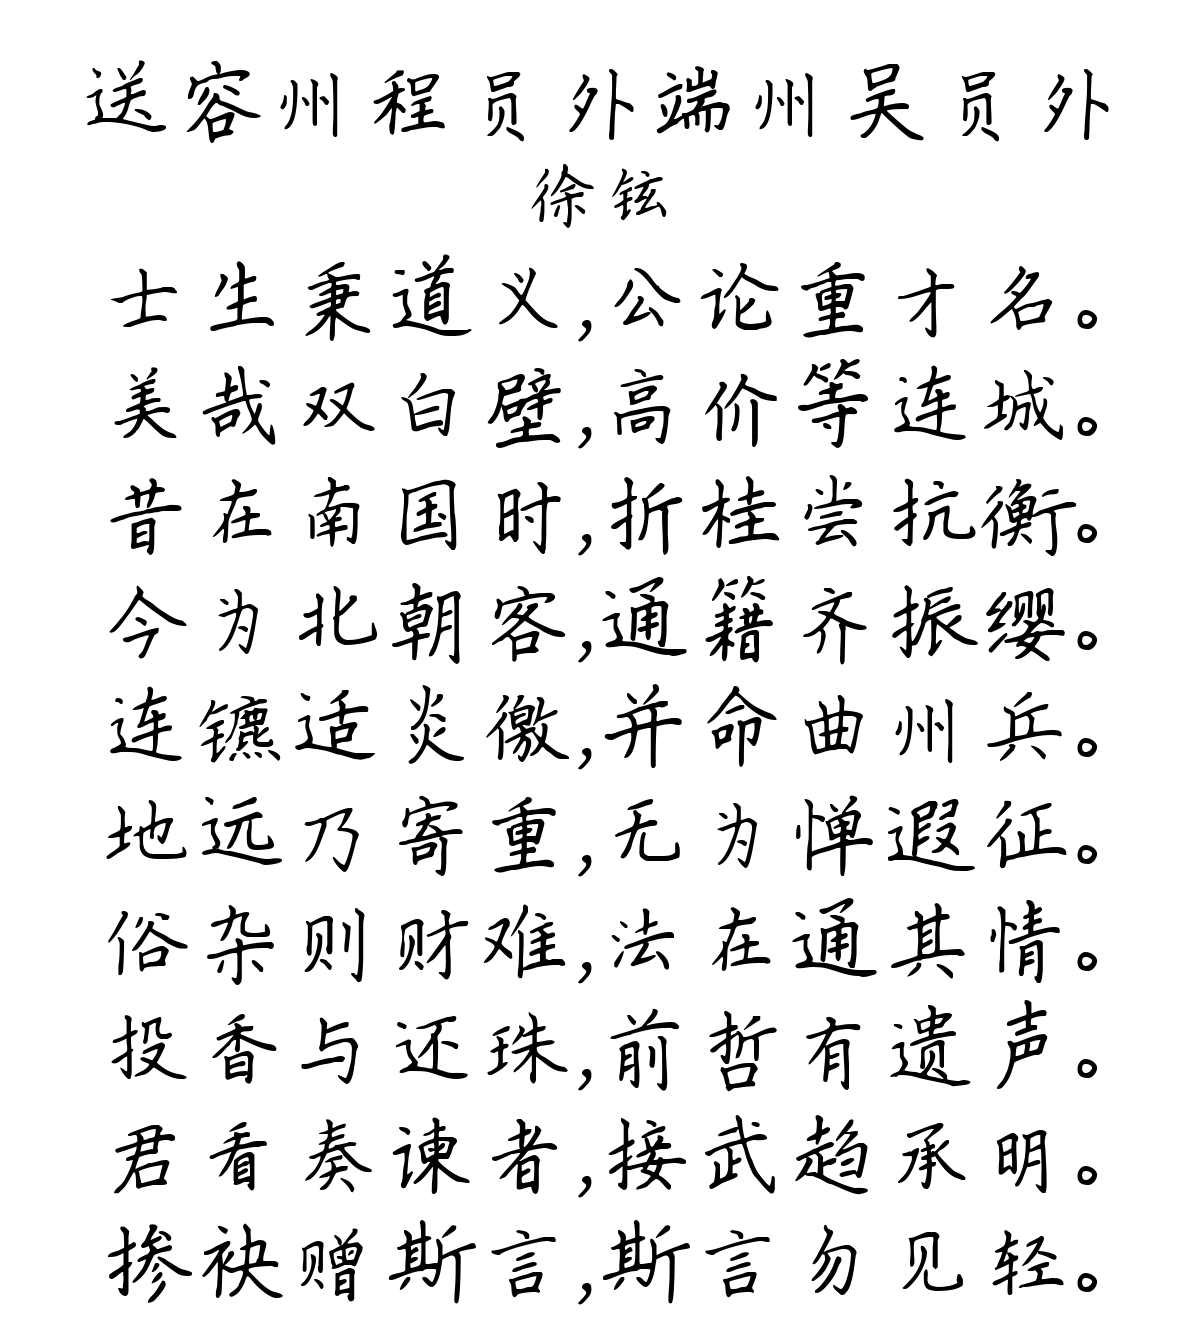 送容州程员外端州吴员外
徐铉
士生秉道义,公论重才名。
美哉双白壁,高价等连城。
昔在南国时,折桂尝抗衡。
今为北朝客,通籍齐振缨。
连镳适炎徼,并命曲州兵。
地远乃寄重,无为惮遐征。
俗杂则财难,法在通其情。
投香与还珠,前哲有遗声。
君看奏谏者,接武趋承明。
掺袂赠斯言,斯言勿见轻。